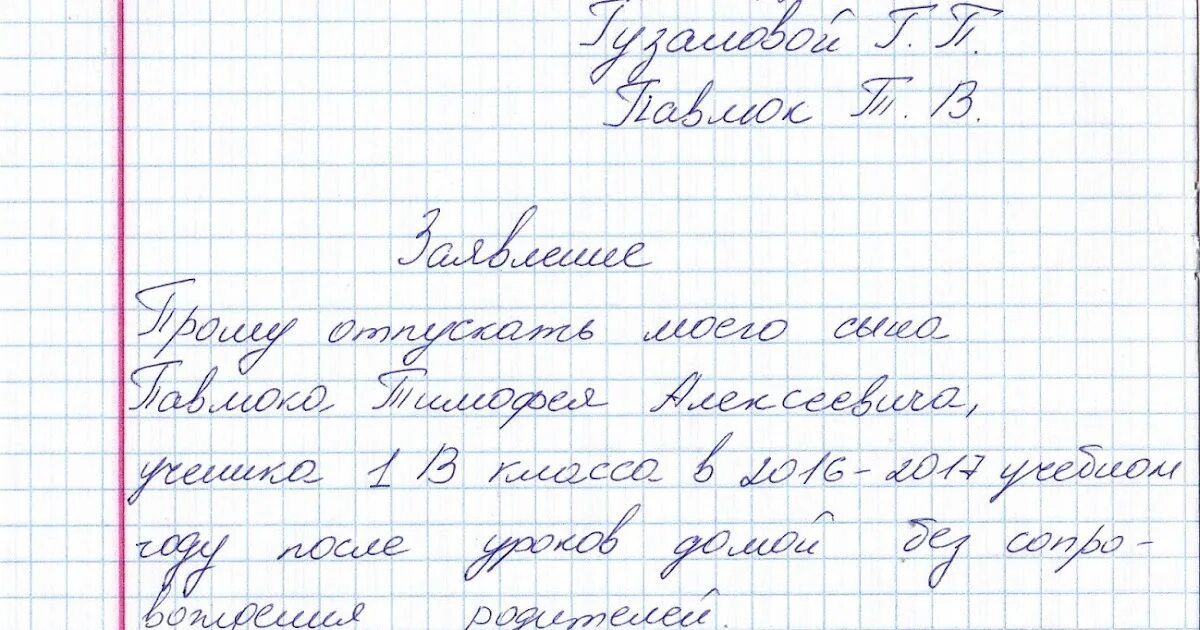 Гузаловой Г. П.
Павлюк Т. В.
Заявление
Прошу отпускать моего сына
Павлюка Тимофея Алексеевича,
ученика 1 В класса в 2016-2017 учебном
году после уроков домой без сопро-
вождения родителей.